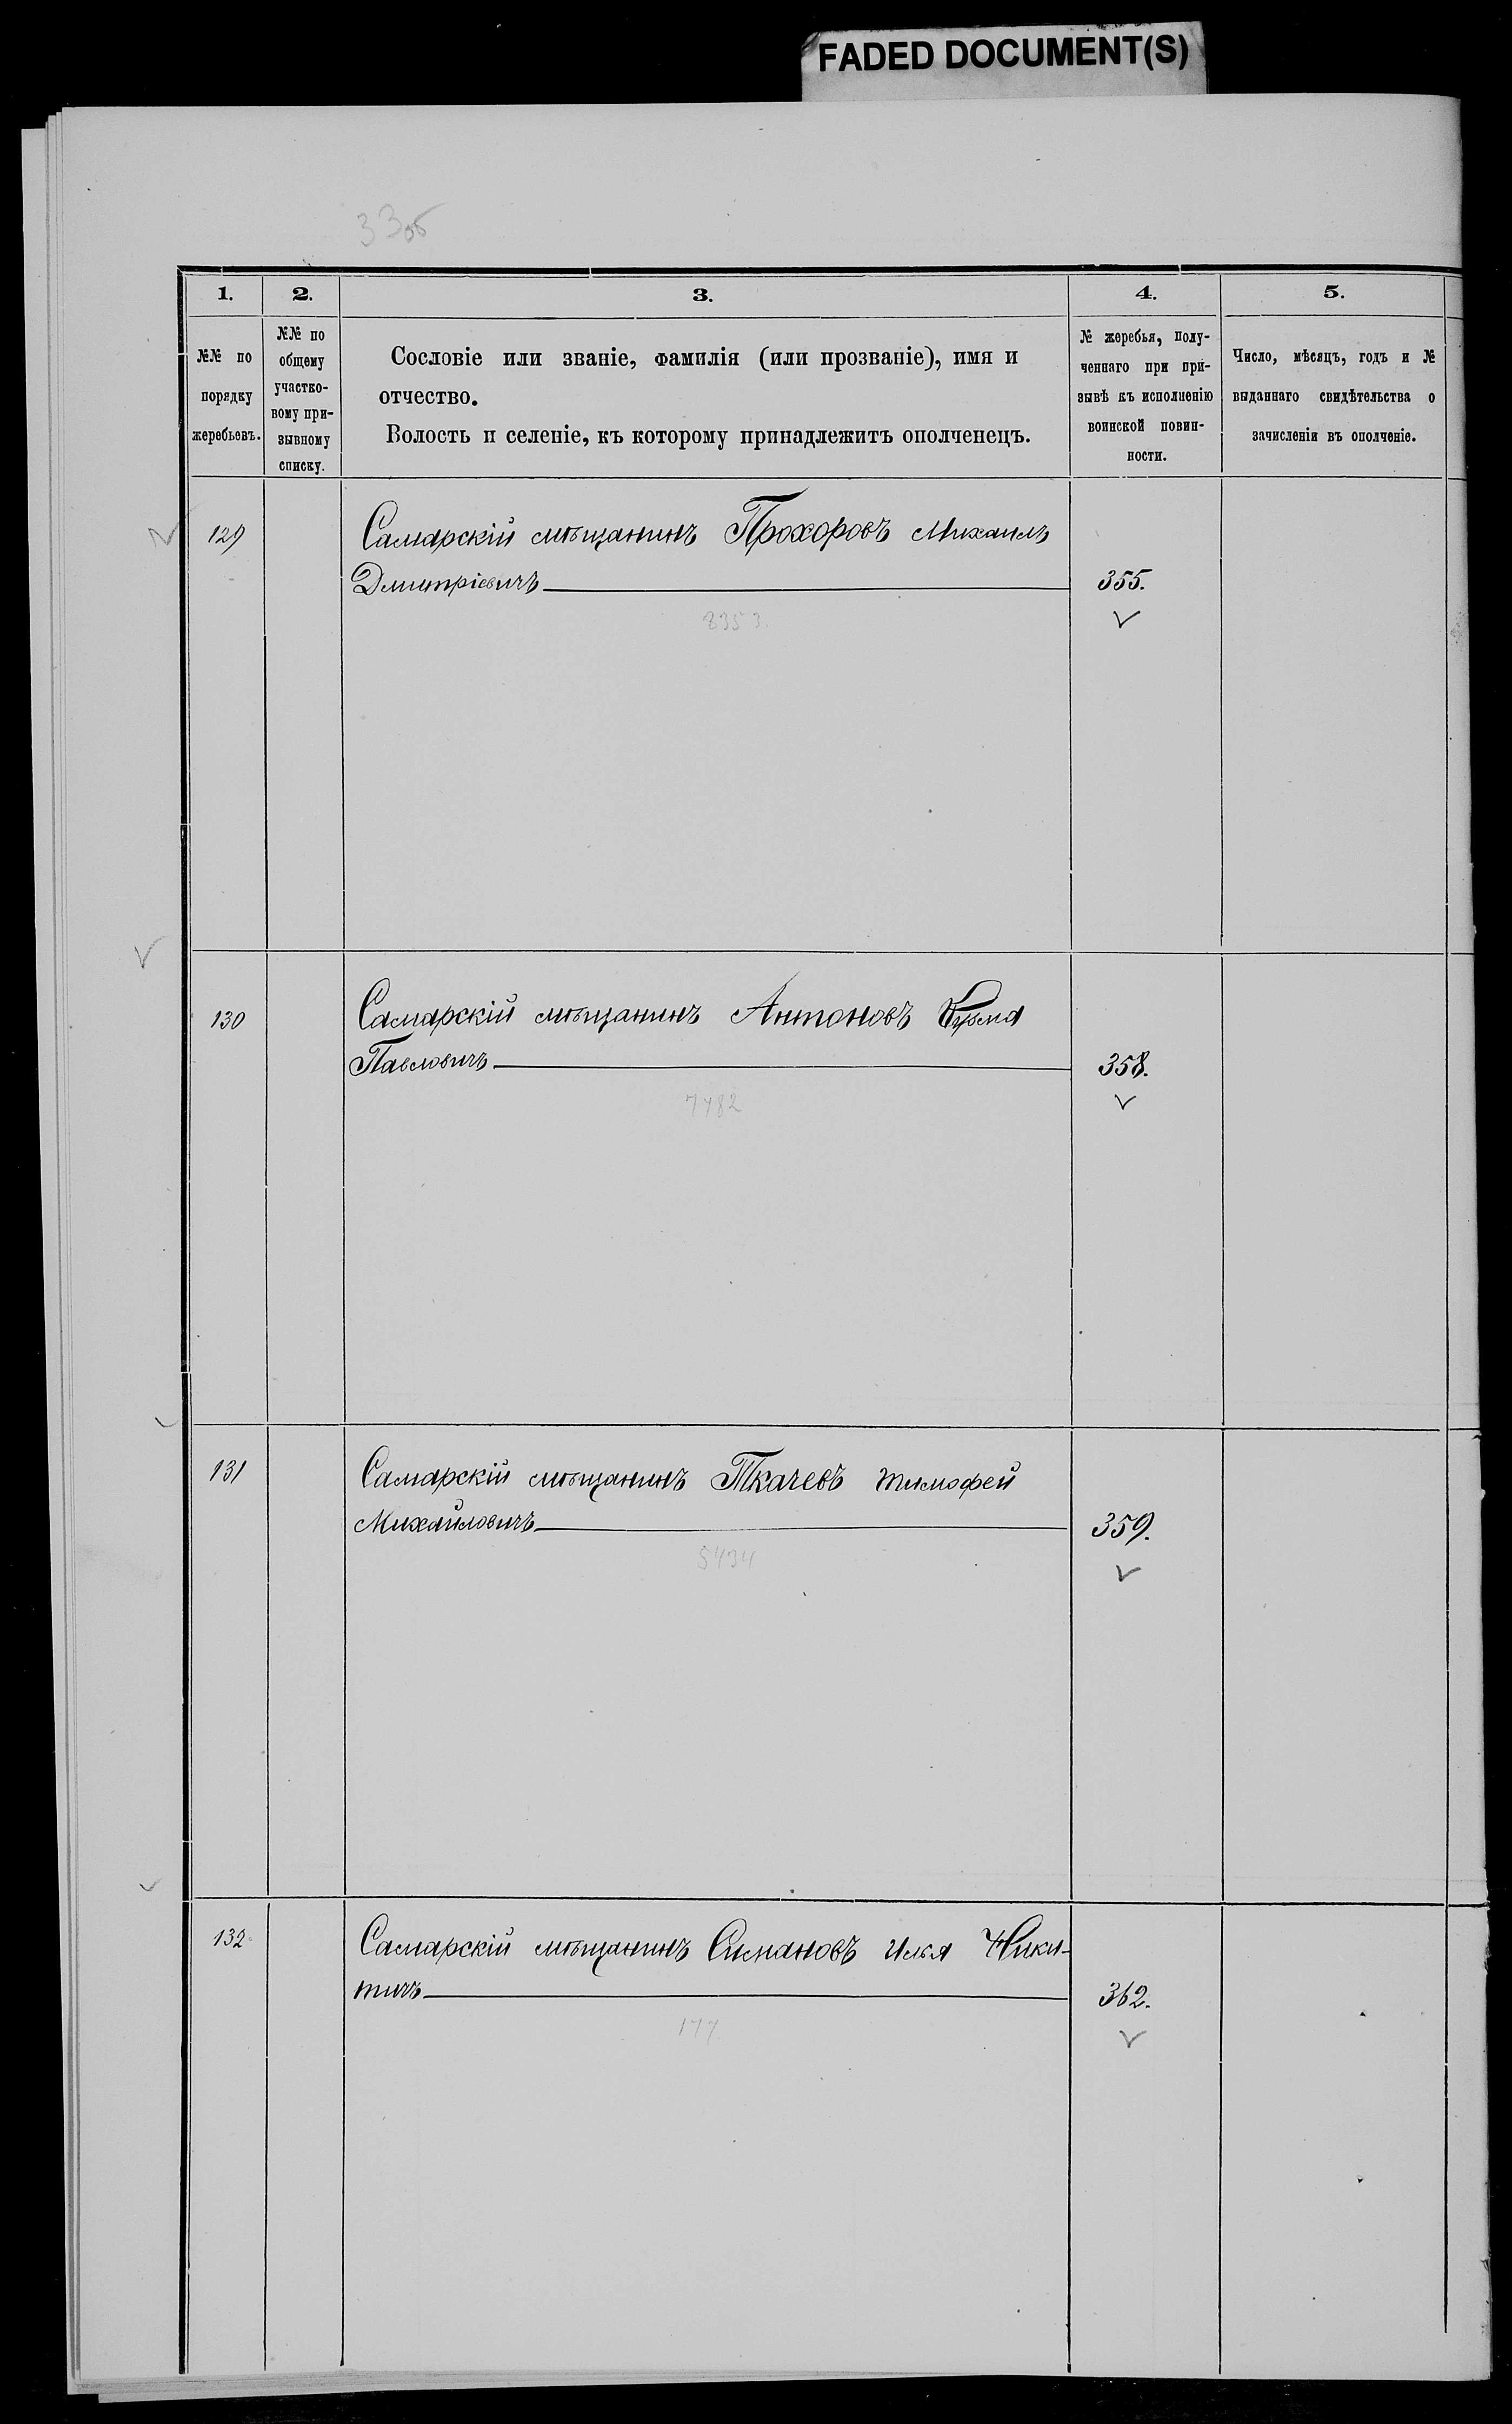 FADED DOCUMENT(S)
33об
1. 2. 3. 4. 5.
№№ по
порядку
жеребьевъ.
№№ по
общему
участко-
вому при-
зывному
списку.
Сословіе или званіе, фамилія (или прозваніе), имя и
отчество.
Волость и селеніе, къ которому принадлежитъ ополченецъ.
№ жеребья, полу-
ченнаго при при-
зывѣ къ исполненію
воинской повин-
ности.
Число, мѣсяцъ, годъ и №
выданнаго свидѣтельства о
зачисленіи въ ополченіе.
129 Самарскій мѣщанинъ Прохоровъ Михаилъ
Дмитріевичъ 355.
8353.
130 Самарскій мѣщанинъ Антоновъ Кузьма
Павловичъ 358.
7482
131 Самарскій мѣщанинъ Ткачевъ Тимофей
Михайловичъ 359.
5434
132 Самарскій мѣщанинъ Симановъ Илья Ники-
тичъ 362.
177